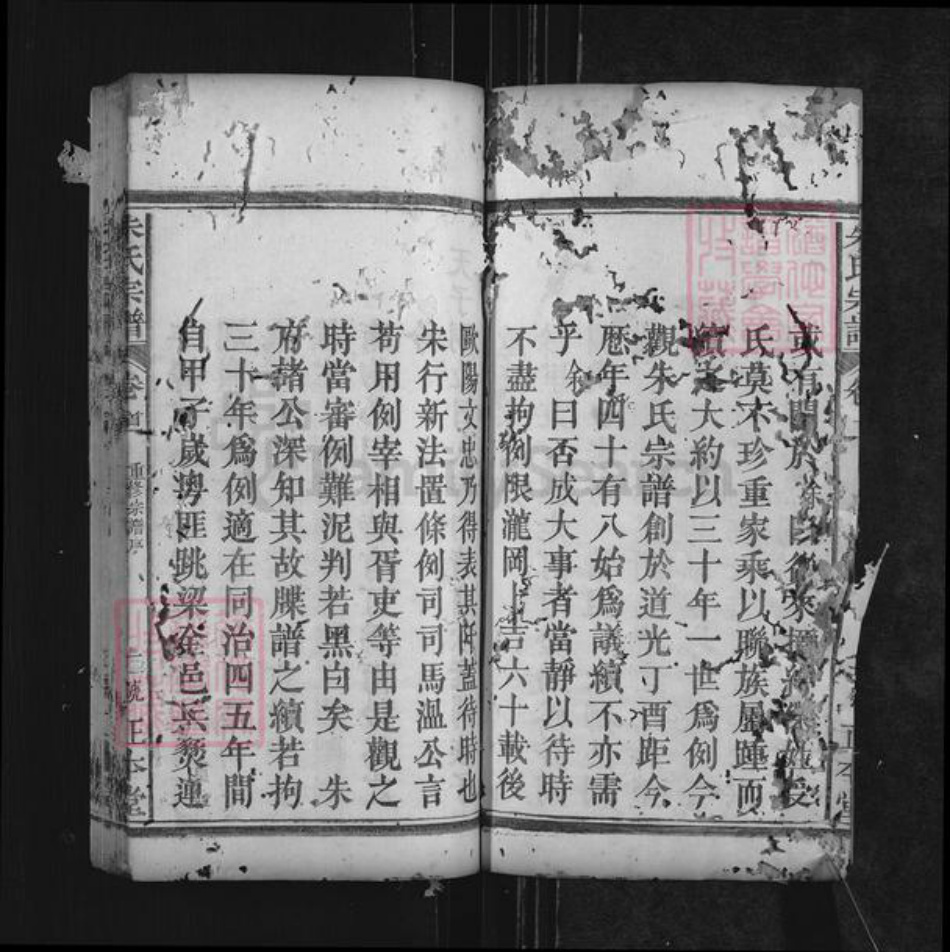 或有問於余曰從來得姓受
氏莫不珍重家乘以聯族屬踵而
續之大約以三十年一世爲例今
觀朱氏宗譜創於道光丁酉距今
歷年四十有八始爲議續不亦需
乎余曰否成大事者當靜以待時
不盡拘例限瀧岡卜吉六十載後
歐陽文忠乃得表其阡蓋待時也
宋行新法置條例司司馬溫公言
苟用例宰相與胥吏等由是觀之
時當審例難泥判若黑白矣 朱
府諸公深知其故牒譜之續若拘
三十年爲例適在同治四五年間
自甲子歲粵匪跳梁全邑兵燹連
朱氏宗譜
卷首
重修宗譜序
正本堂